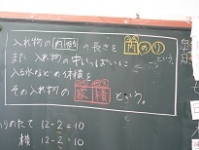 入れ物の内側の長さを内のり
という。
また、入れ物の中いっぱいに
入る水などの体積を
その入れ物の容積という。
たて 12-2=10
横 12-2=10